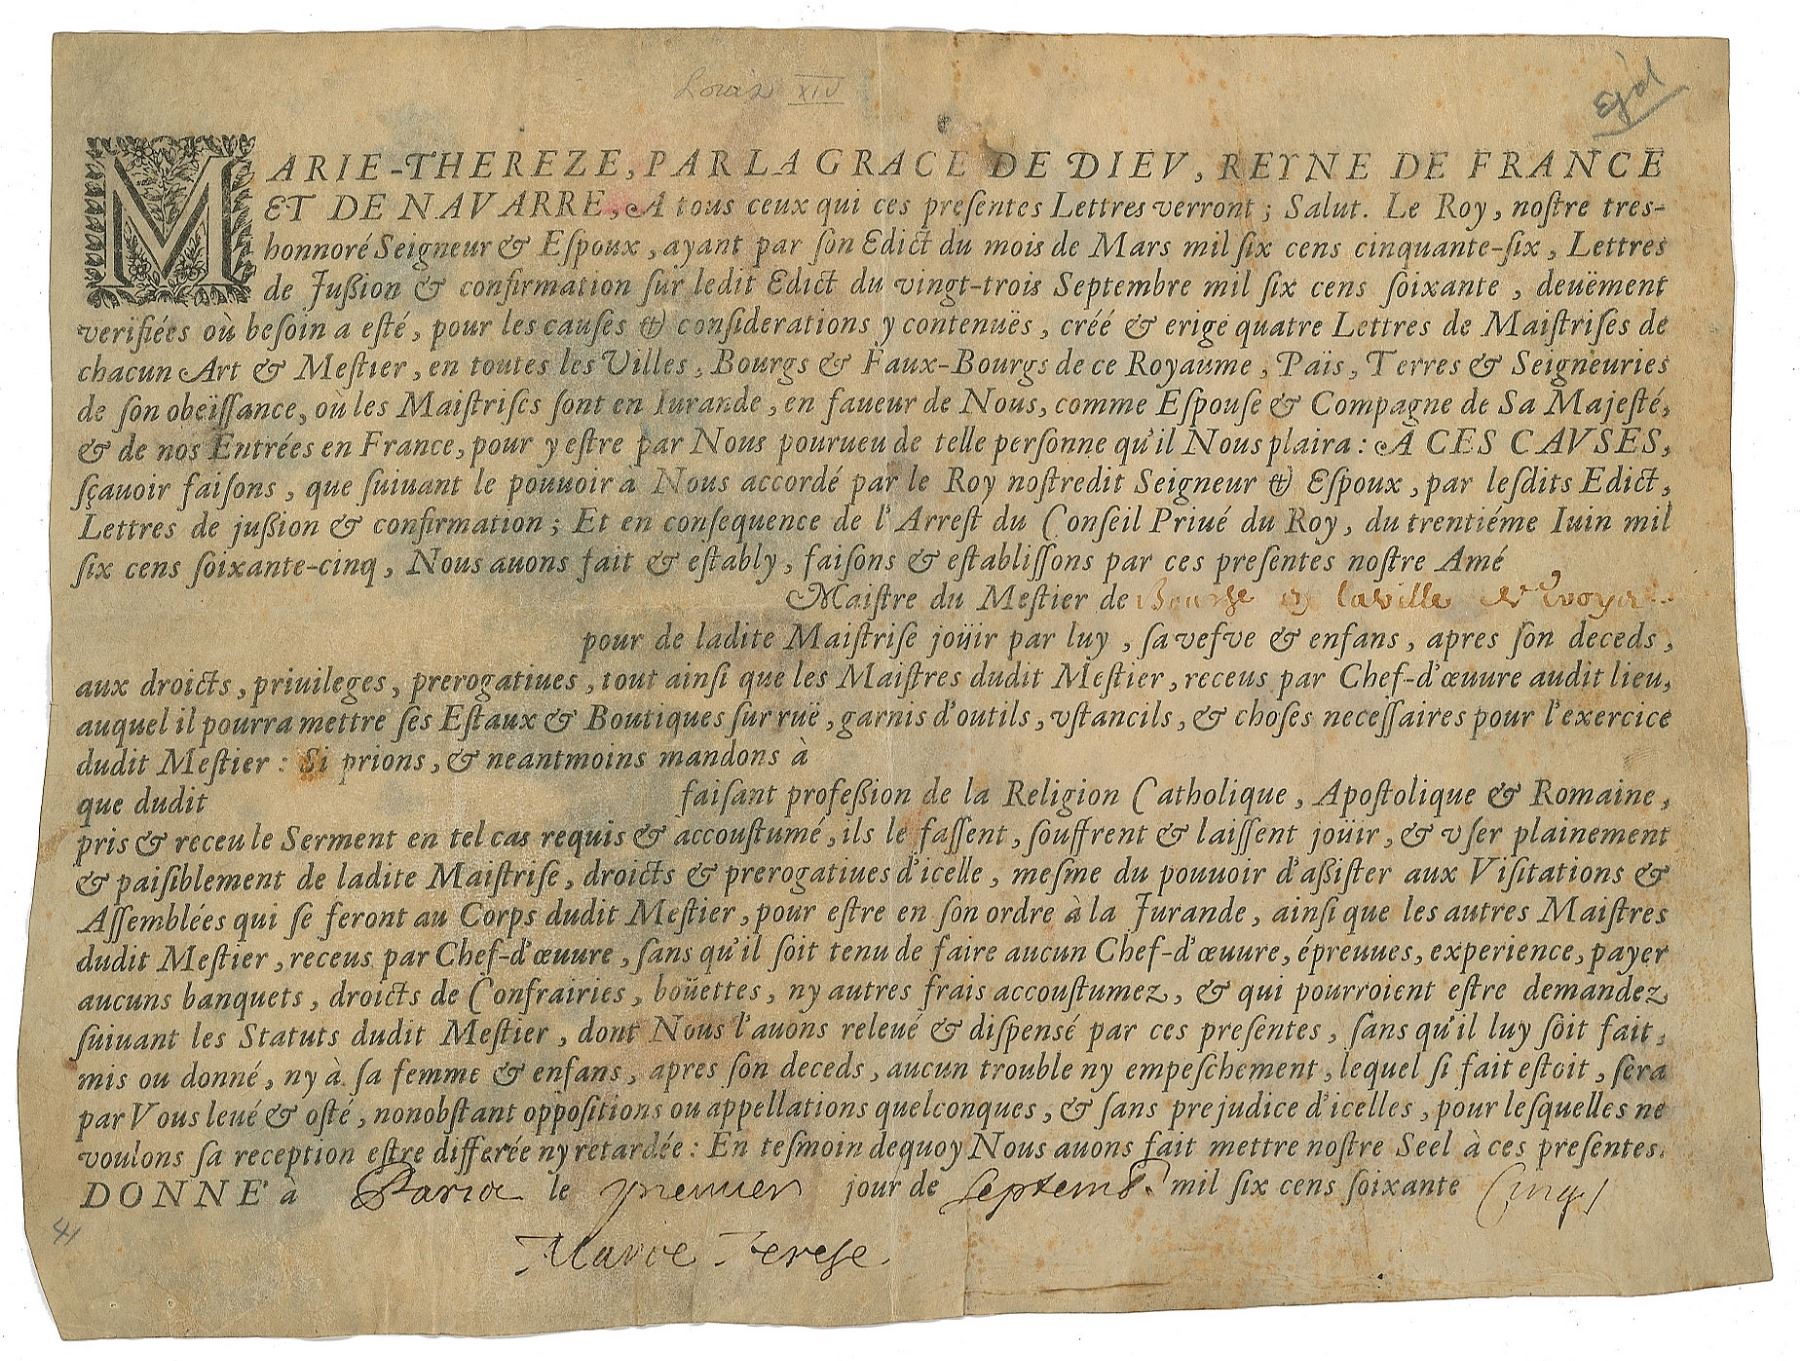 Louis XIV
MARIE-THEREZE, PAR LA GRACE DE DIEV, REYNE DE FRANCE
ET DE NAVARRE, A tous ceux qui ces preſentes Lettres verront ; Salut. Le Roy, noſtre tres-
honnoré Seigneur & Eſpoux, ayant par ſon Edict du mois de Mars mil ſix cens cinquante-ſix, Lettres
de Juſſion & confirmation ſur ledit Edict du vingt-trois Septembre mil ſix cens ſoixante, deuëment
verifiées où beſoin a eſté, pour les cauſes & conſiderations y contenuës, créé & erigé quatre Lettres de Maiſtriſes de
chacun Art & Meſtier, en toutes les Villes, Bourgs & Faux-Bourgs de ce Royaume, Païs, Terres & Seigneuries
de ſon obeïſſance, où les Maiſtriſes ſont en Iurande, en faueur de Nous, comme Eſpouſe & Compagne de Sa Majeſté,
& de nos Entrées en France, pour y eſtre par Nous pourueu de telle perſonne qu'il Nous plaira : A CES CAVSES,
ſçauoir faiſons, que ſuiuant le pouuoir à Nous accordé par le Roy noſtredit Seigneur & Eſpoux, par leſdits Edict,
Lettres de juſſion & confirmation ; Et en conſequence de l'Arreſt du Conſeil Priué du Roy, du trentiéme Iuin mil
ſix cens ſoixante-cinq, Nous auons fait & eſtably, faiſons & eſtabliſſons par ces preſentes noſtre Amé
Maiſtre du Meſtier de laville
pour de ladite Maiſtriſe joüir par luy, ſa vefve & enfans, apres ſon deceds,
aux droicts, priuileges, prerogatiues, tout ainſi que les Maiſtres dudit Meſtier, receus par Chef-d'œuure audit lieu,
auquel il pourra mettre ſes Eſtaux & Boutiques ſur ruë, garnis d'outils, vſtancils, & choſes neceſſaires pour l'exercice
dudit Meſtier : Si prions, & neantmoins mandons à
que dudit faiſant profeſſion de la Religion Catholique, Apoſtolique & Romaine,
pris & receu le Serment en tel cas requis & accouſtumé, ils le faſſent, ſouffrent & laiſſent joüir, & vſer plainement
& paiſiblement de ladite Maiſtriſe, droicts & prerogatiues d'icelle, meſme du pouuoir d'aſſiſter aux Viſitations &
Aſſemblées qui ſe feront au Corps dudit Meſtier, pour eſtre en ſon ordre à la Jurande, ainſi que les autres Maiſtres
dudit Meſtier, receus par Chef-d'œuure, ſans qu'il ſoit tenu de faire aucun Chef-d'œuure, épreuues, experience, payer
aucuns banquets, droicts de Confrairies, boüettes, ny autres frais accouſtumez, & qui pourroient eſtre demandez
ſuiuant les Statuts dudit Meſtier, dont Nous l'auons releué & diſpenſé par ces preſentes, ſans qu'il luy ſoit fait,
mis ou donné, ny à ſa femme & enfans, apres ſon deceds, aucun trouble ny empeſchement, lequel ſi fait eſtoit, ſera
par Vous leué & oſté, nonobſtant oppoſitions ou appellations quelconques, & ſans prejudice d'icelles, pour leſquelles ne
voulons ſa reception eſtre differée ny retardée : En teſmoin dequoy Nous auons fait mettre noſtre Seel à ces preſentes.
DONNE' à Paris le premier jour de Septemb. mil ſix cens ſoixante Cinq
Marie Terese.